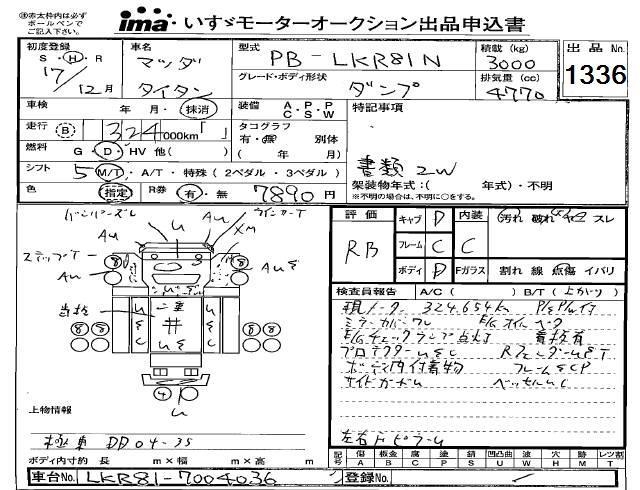 ※赤太枠内は必ず
ボールペンで
ご記入下さい。
ima いすゞモーターオークション出品申込書
初度登録
S・H・R
17/12月
車名
マツダ
タイタン
型式
PB-LKR81N
グレード・ボディ形状
ダンプ
積載 (kg)
3000
排気量 (cc)
4770
出品No.
1336
車検 年 月・抹消
装備 A・P・P
C・S・W
特記事項
走行 B 324,000km「 」
タコグラフ
有・無 別体
( 年 月)
燃料 G・D・HV 他( )
シフト 5 M/T・A/T・特殊(2ペダル・3ペダル)
書類 2W
架装物年式:( 年式)・不明
※不明の場合は、不明に○をする。
色 指定 R券 有・無 7890円
評価 RB
キャブ D 内装 汚れ 破れ ヤニ スレ
フレーム C C
ボディ D Fガラス 割れ 線 点傷 イバリ
バンパーズレ
ウインカーT
ステップT
AU
XM
U
検査員報告 A/C( ) B/T(上がり)
現メーター 324,654km
ミラーカバーワレ E/Gオイルベーク
E/Gチェックランプ点灯
ボデー内付着物
サイドガード
左右ドアピラーU
上物情報
極東 DD04-35
ボディ内寸約 長 m×幅 m×高 m
記号 傷A 板金B 腐C 塗P 錆S 凹凸曲U 波W 穴H 跡M レツ割T
車台No. LKR81-7004036
登録No.